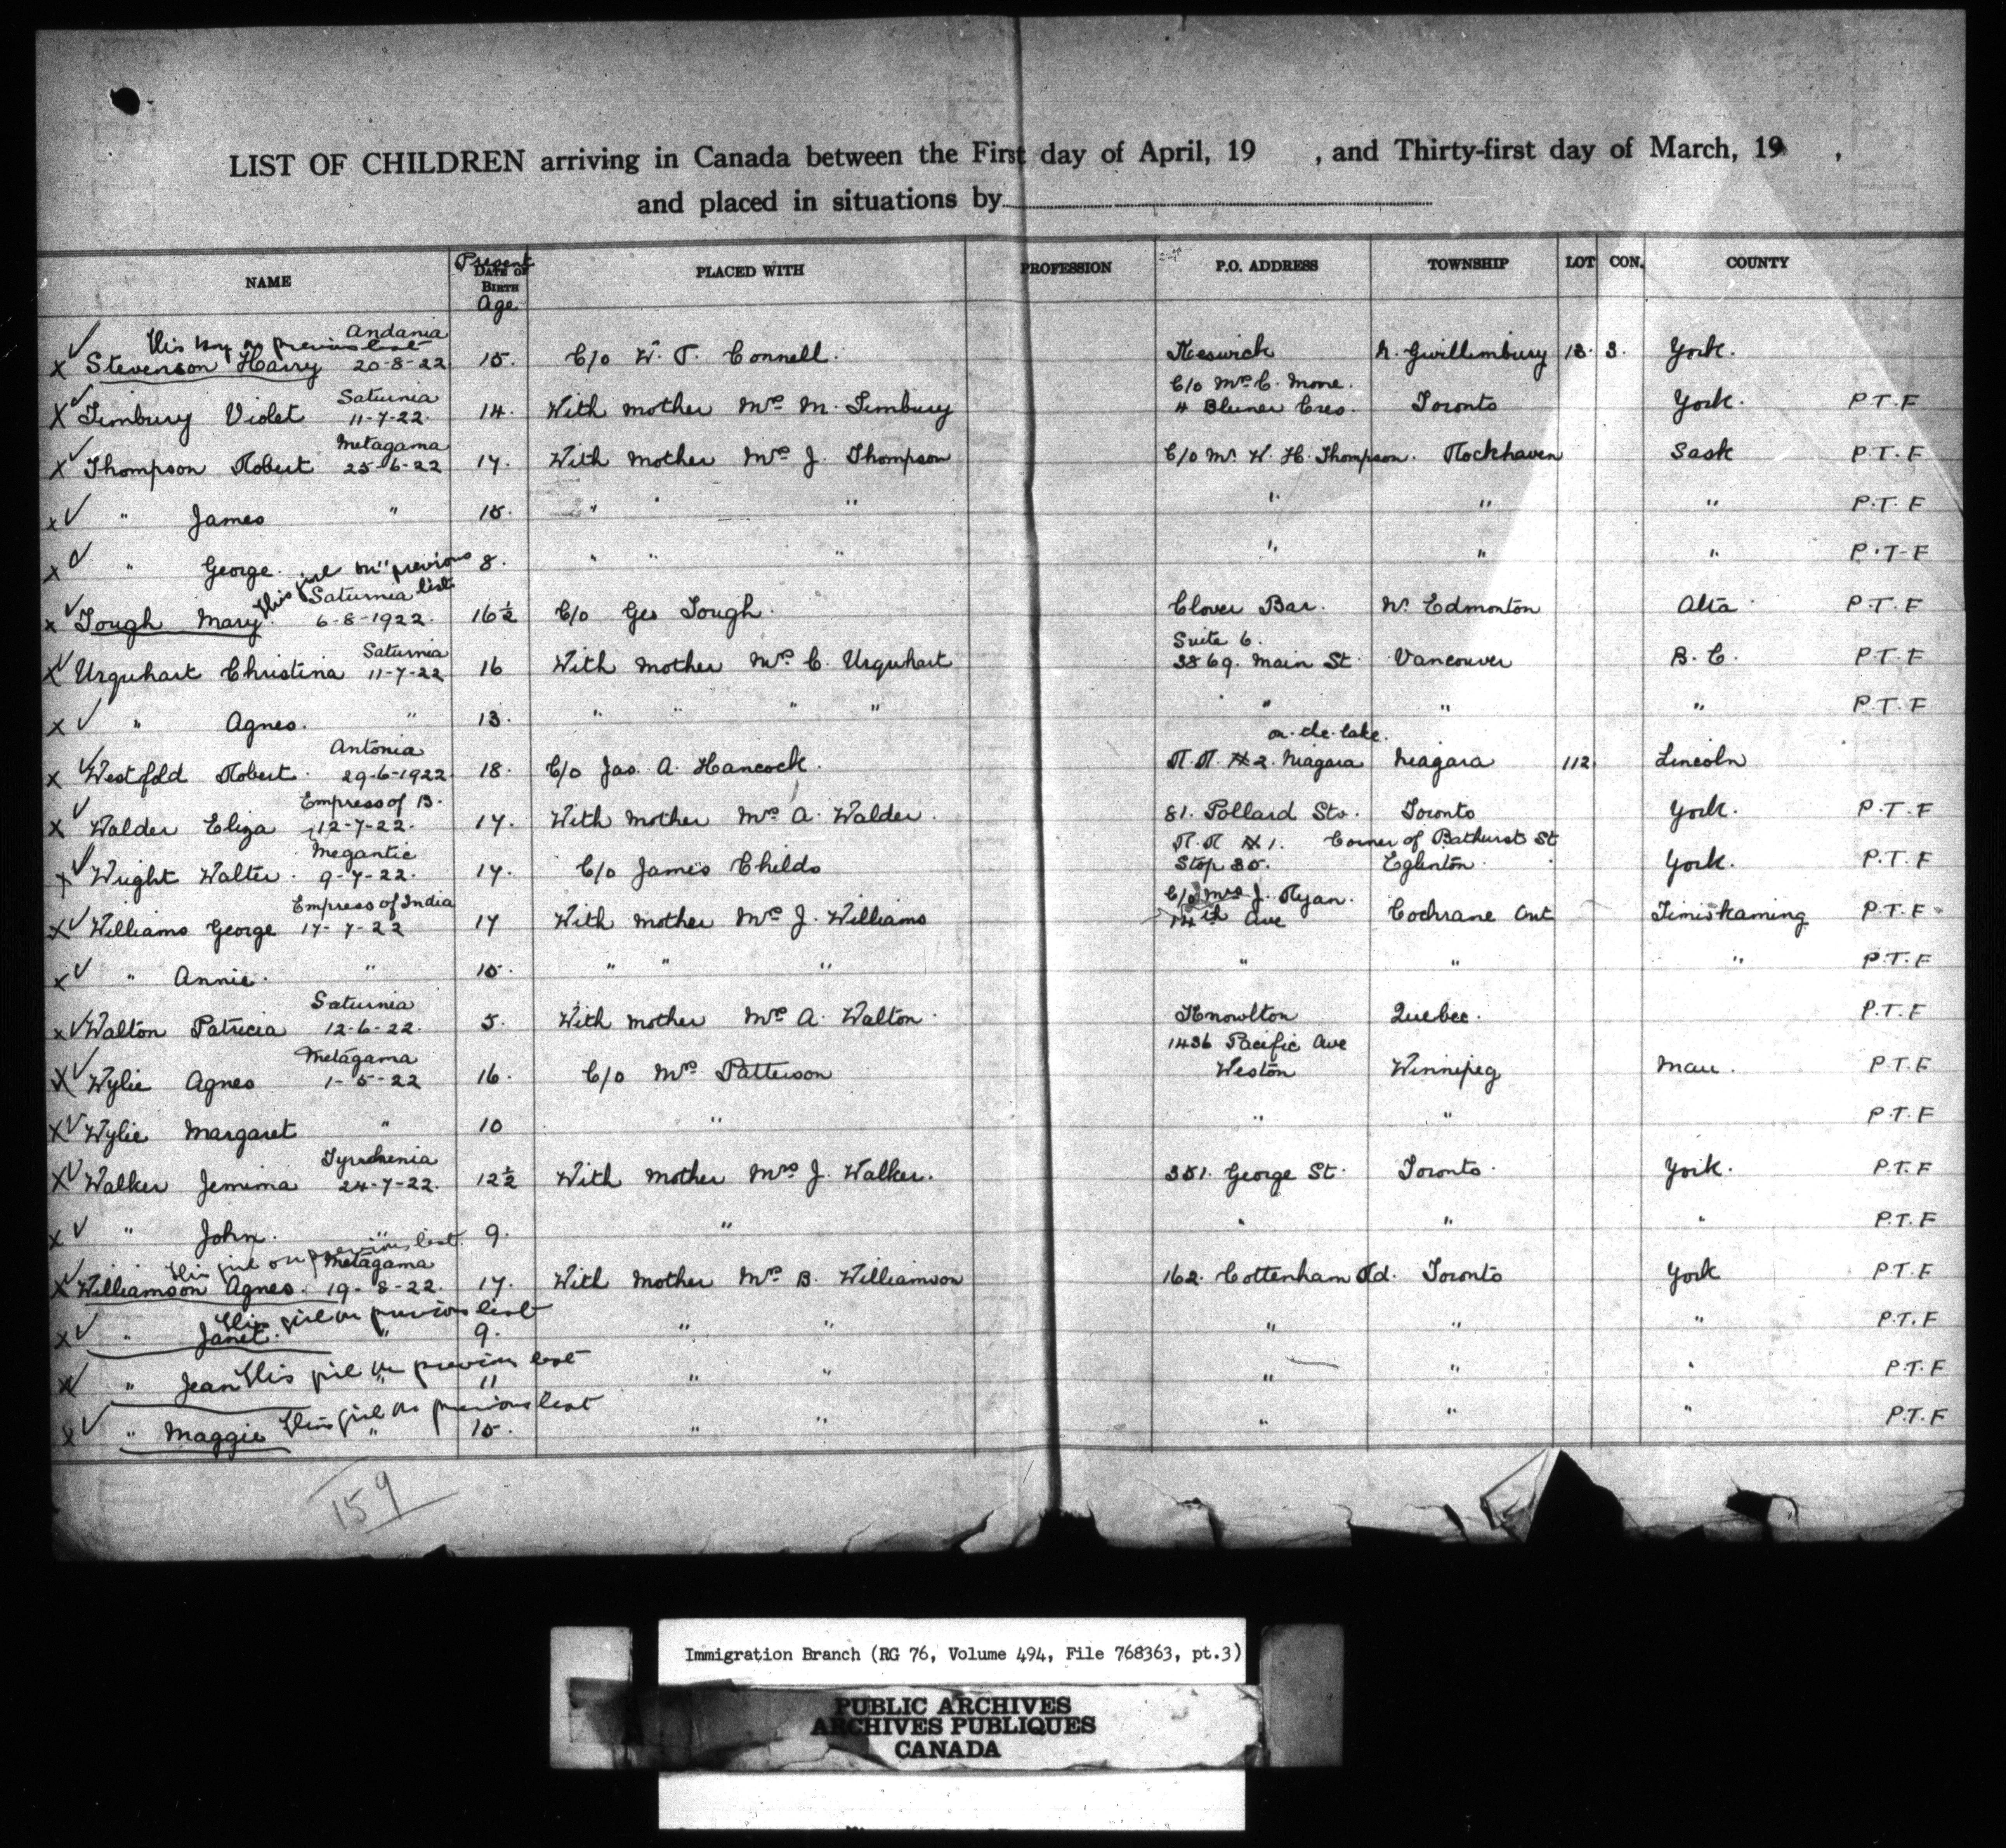 LIST OF CHILDREN arriving in Canada between the First day of April, 19 , and Thirty-first day of March, 19 ,
and placed in situations by
NAME Present DATE OF BIRTH Age PLACED WITH PROFESSION P.O. ADDRESS TOWNSHIP LOT CON. COUNTY
This boy on previous list Andania
X ✓ Stevenson Harry 20-8-22 15. C/o W. T. Connell. Keswick N. Gwillimbury 13. 3. York.
Saturnia C/o Mrs C. Mone.
X ✓ Timbury Violet 11-7-22. 14. With mother Mrs M. Timbury 4 Cres. Toronto York. P.T.F
Metagama
X ✓ Thompson Robert 25-6-22 17. With Mother Mrs J. Thompson C/o Mr W. H. Thompson. Rockhaven Sask P.T.F
X ✓ " James " 15. " " " " " " P.T.F
X ✓ " George. " 8. " " " " " " P.T-F
This girl on previous list Saturnia
X ✓ Tough Mary 6-8-1922. 16½ C/o Geo Tough. Clover Bar. W. Edmonton Alta P.T.F
Saturnia Suite 6.
X ✓ Urquhart Christina 11-7-22 16 With mother Mrs C. Urquhart 3869. Main St. Vancouver B.C. P.T.F
X ✓ " Agnes. " 13. " " " " " " " P.T.F
Antonia on-the-lake.
X ✓ Westfold Robert. 29-6-1922 18. C/o Jas. A. Hancock. R.R. #2. Niagara Niagara 112 Lincoln
Empress of B.
X ✓ Walder Eliza 12-7-22. 17. With Mother Mrs A. Walder. 81. Pollard Sts. Toronto York. P.T.F
Megantic R.R #1. Corner of Bathurst St
X ✓ Wright Walter. 9-7-22. 17. C/o James Childs Stop 30. Eglenton. York. P.T.F
Empress of India C/o Mrs J. Ryan.
X ✓ Williams George 17-7-22 17 With mother Mrs J. Williams 14th Ave Cochrane Ont Timiskaming P.T.F
X ✓ " Annie. " 15. " " " " " " P.T.F
Saturnia
X ✓ Walton Patricia 12-6-22. 5. With mother Mrs A. Walton. Knowlton Quebec. P.T.F
Metagama 1436 Pacific Ave
X ✓ Wylie Agnes 1-5-22 16. C/o Mrs Patterson Weston Winnipeg Man. P.T.F
X ✓ Wylie Margaret " 10 " " " P.T.F
Tyrrhenia
X ✓ Walker Jemima 24-7-22. 12½ With Mother Mrs J. Walker. 351. George St. Toronto. York. P.T.F
X ✓ " John. " 9. " " " " P.T.F
This girl on previous list. Metagama
X ✓ Williamson Agnes. 19-8-22. 17. With Mother Mrs B. Williamson 162. Cottenham Rd. Toronto York P.T.F
This girl on previous list
X ✓ " Janet. " 9. " " " " " P.T.F
X ✓ " Jean This girl on previous list " 11 " " " " " P.T.F
X ✓ " Maggie This girl on previous list " 15. " " " " " P.T.F
159
Immigration Branch (RG 76, Volume 494, File 768363, pt.3)
PUBLIC ARCHIVES
ARCHIVES PUBLIQUES
CANADA